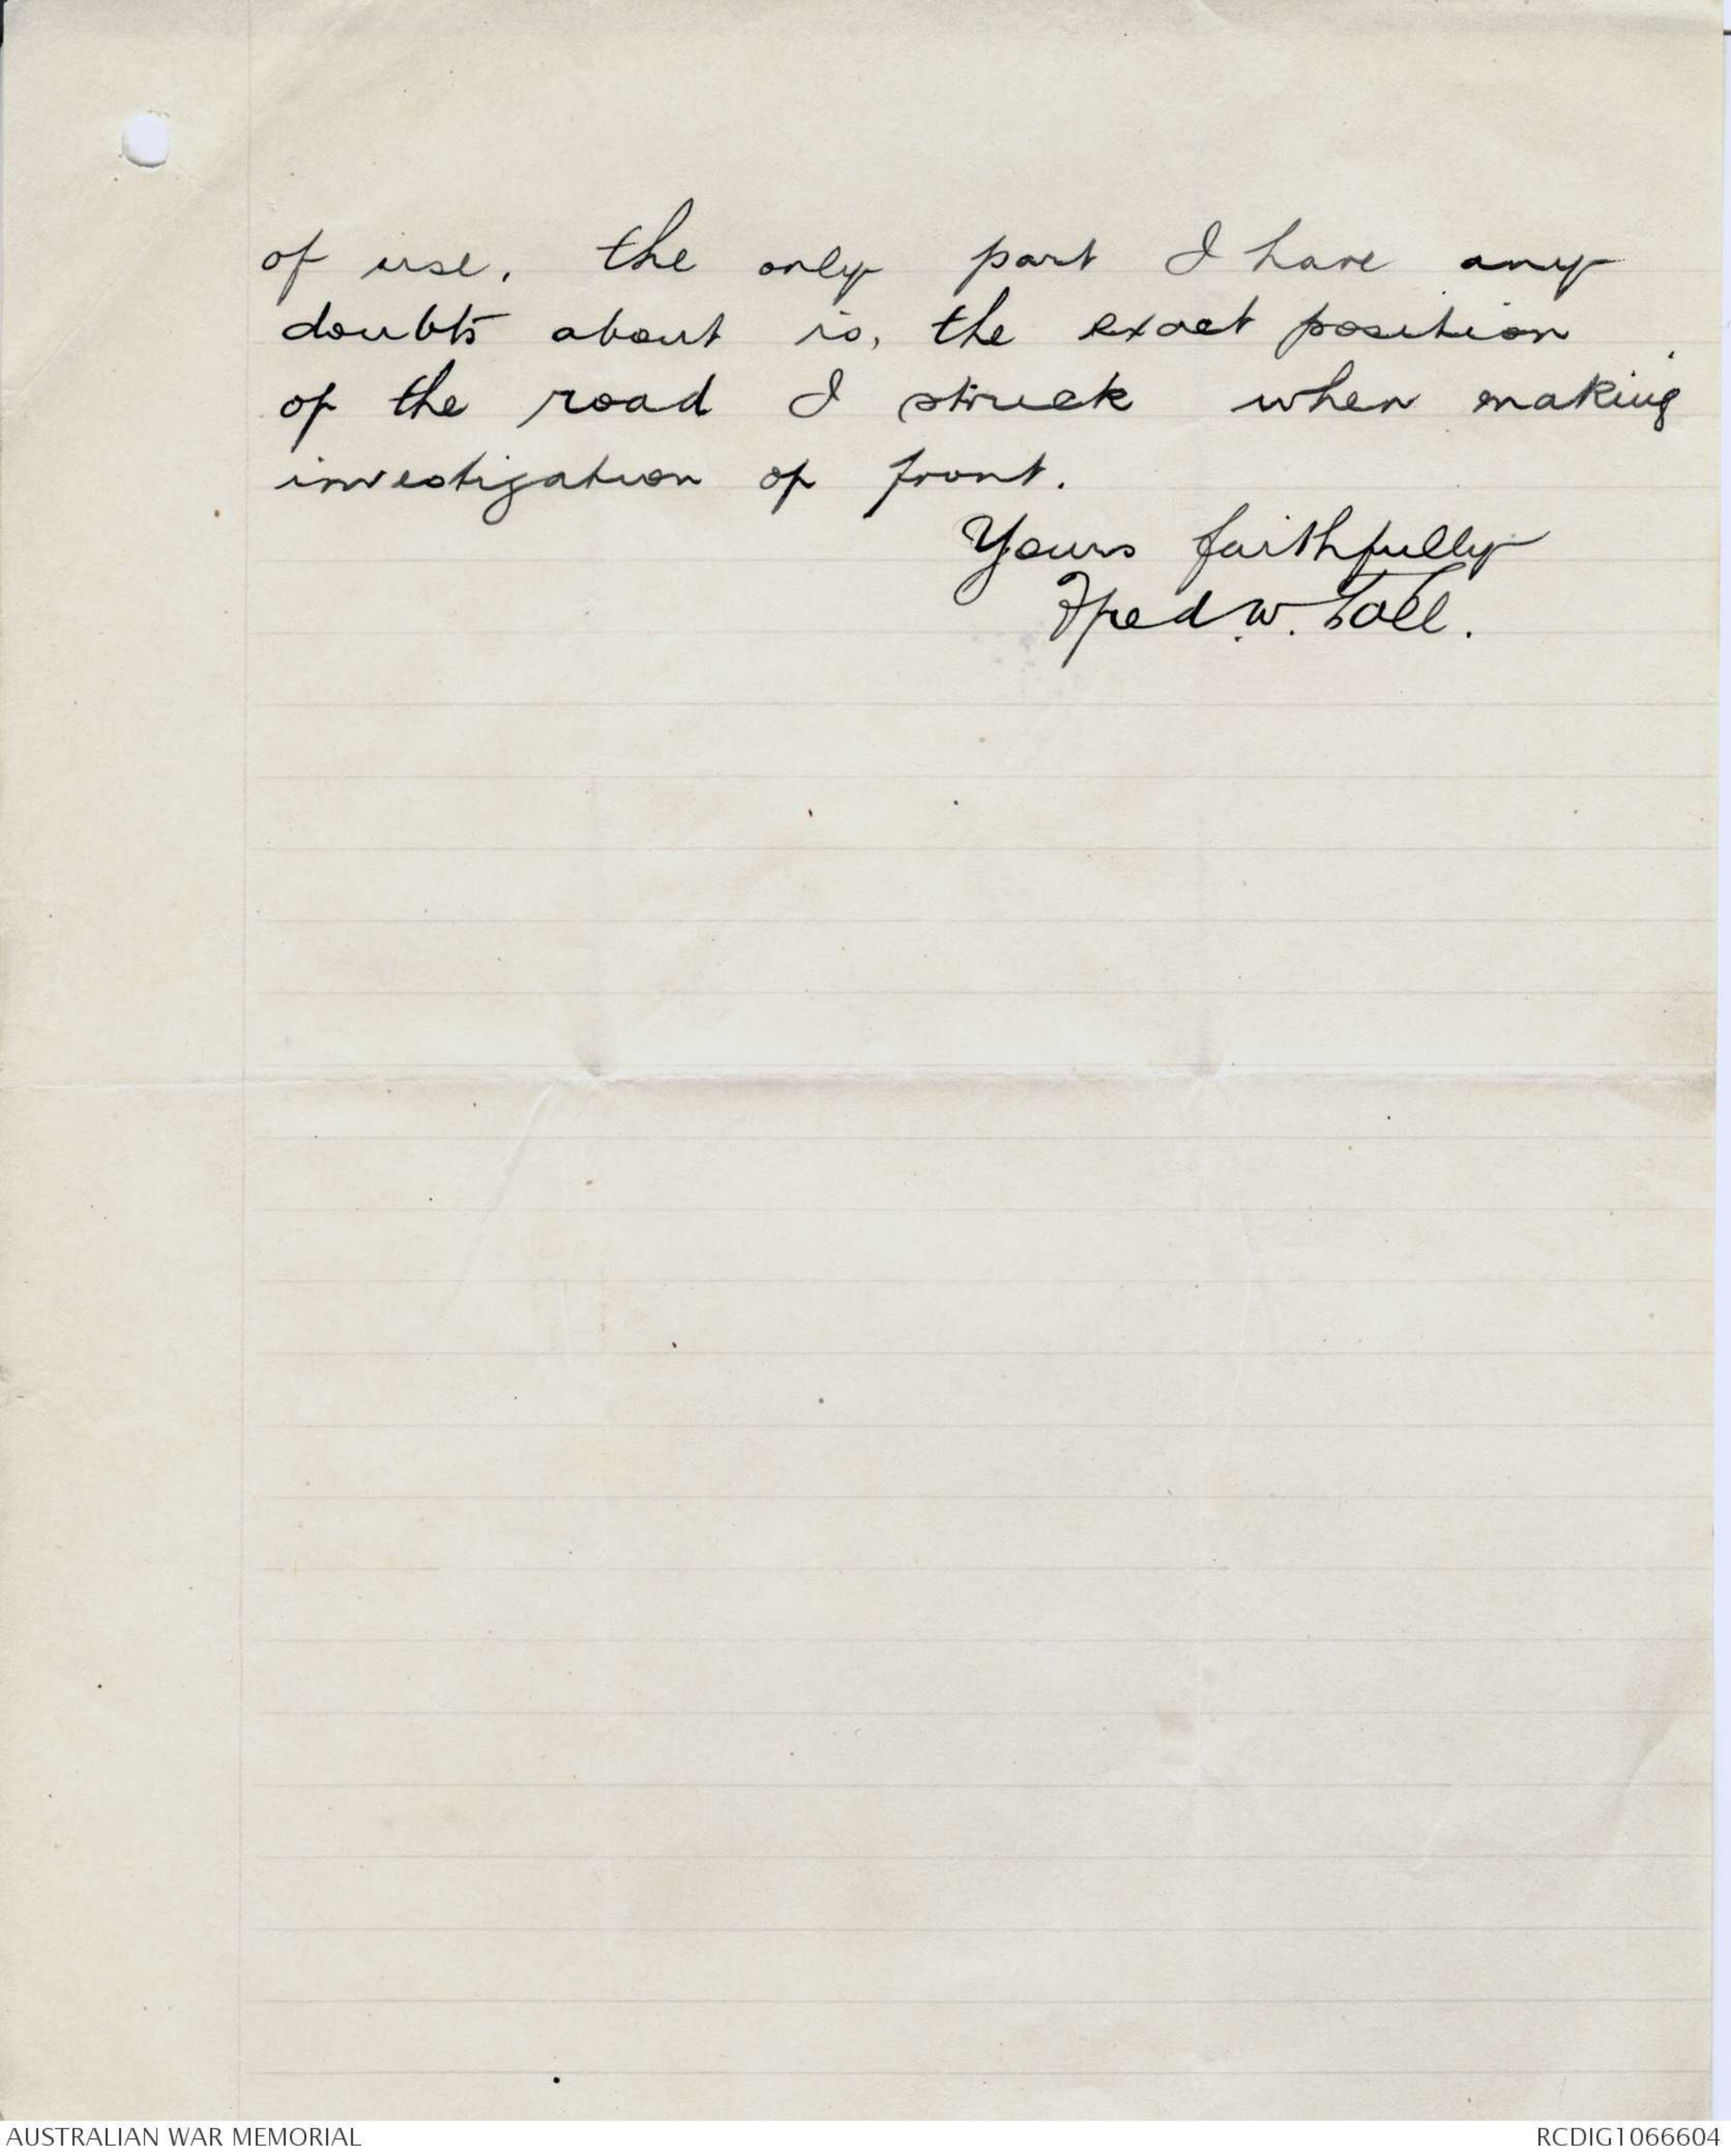 of use. the only part I have any
doubts about is, the exact position
of the road I struck when making
investigation of front.
Yours faithfully
Fred. W. Toll.
AUSTRALIAN WAR MEMORIAL
RCDIG1066604